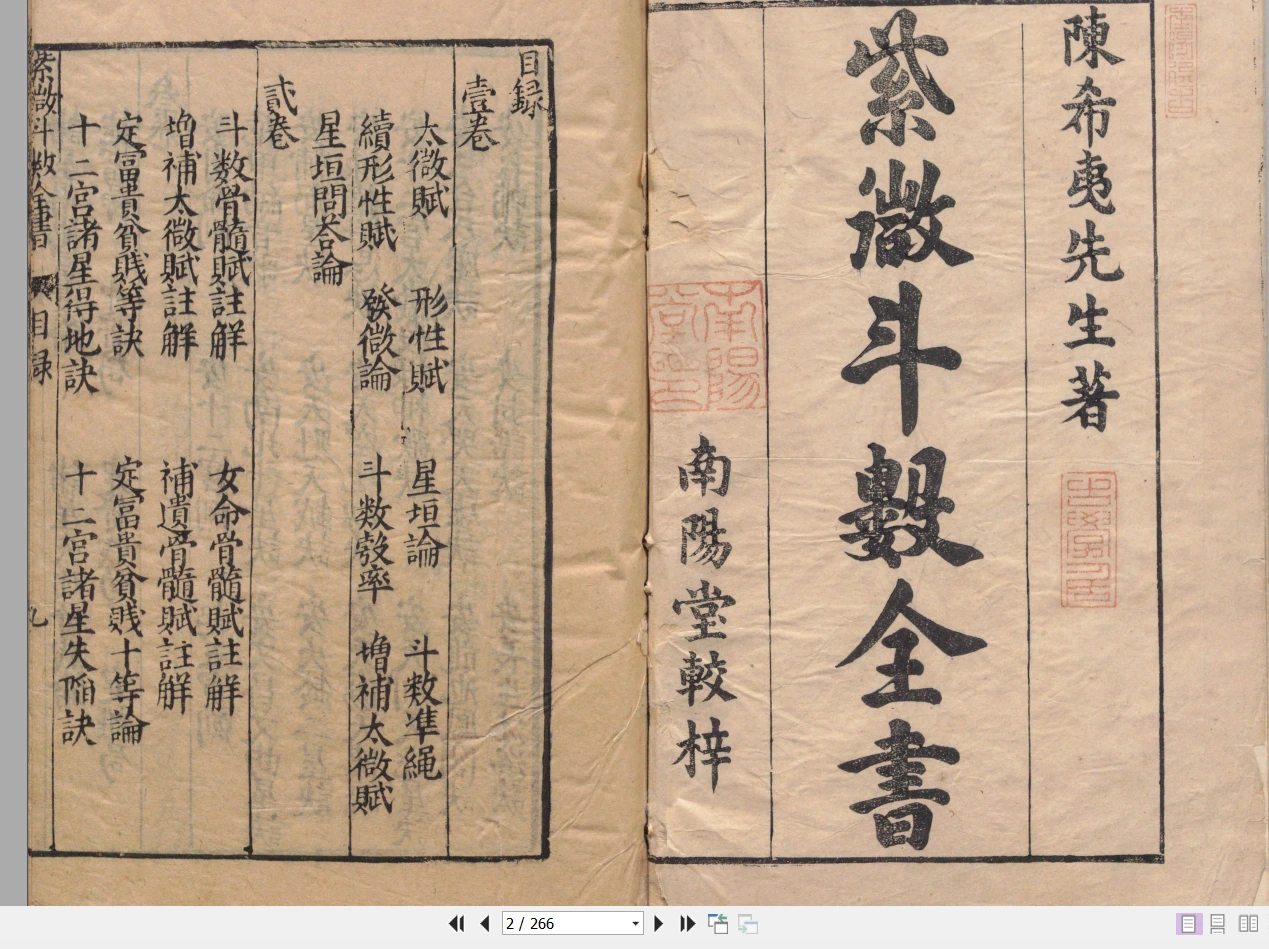 陳希夷先生著
紫微斗數全書
南陽堂較梓
南陽
目録
壹卷
太微賦 形性賦 星垣論 斗数準繩
續形性賦 發微論 斗数彀率 增補太微賦
星垣問荅論
貳卷
斗数骨髓賦註解 女命骨髓賦註解
增補太微賦註解 補遺骨髓賦註解
定冨貴貧賤等訣 定冨貴貧賤十等論
十二宫諸星得地訣 十二宫諸星失陷訣
紫微斗数全書 目録 九
2 / 266